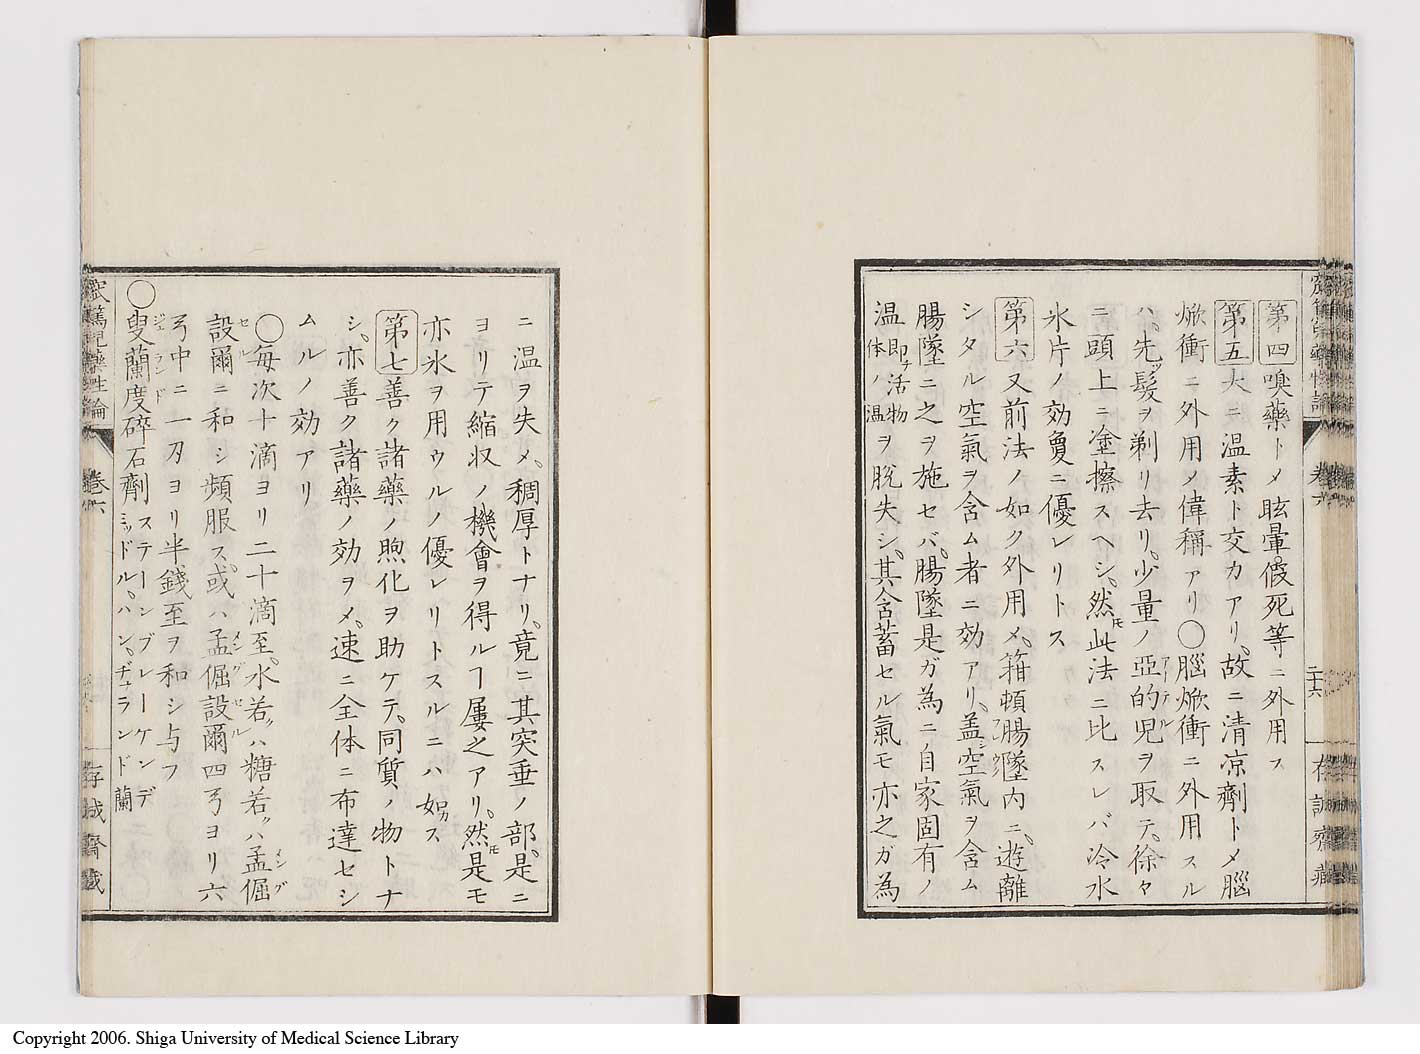 第四 嗅藥トメ眩暈假死等ニ外用ス
第五 大ニ温素ト交力アリ、故ニ清凉劑トメ腦
焮衝ニ外用ノ偉稱アリ〇腦焮衝ニ外用スル
ハ、先ッ髮ヲ剃リ去リ、少量ノ亞的児ヲ取テ、徐々
アーテル
ニ頭上ニ塗擦スヘシ、然𪜈此法ニ比スレバ冷水
氷片ノ効敻ニ優レリトス
第六 又前法ノ如ク外用メ、箝頓腸墜内ニ、遊離
シタル空氣ヲ含ム者ニ効アリ、盖シ空氣ヲ含ム
腸墜ニ之ヲ施セバ、腸墜是ガ為ニ自家固有ノ
温即チ活物体ノ温ヲ脱失シ、其含蓄セル氣モ亦之ガ為
卷六
二十六
ニ温ヲ失メ、稠厚トナリ、竟ニ其突垂ノ部、是ニ
ヨリテ縮収ノ機會ヲ得ルヿ屢之アリ、然𪜈是モ
亦氷ヲ用ウルノ優レリトスルニハ如カス
第七 善ク諸藥ノ煦化ヲ助ケテ、同質ノ物トナ
シ、亦善ク諸藥ノ効ヲメ、速ニ全体ニ布達セシ
ムルノ効アリ
〇毎次十滴ヨリ二十滴至、水若ッハ糖若ッハ孟倔
メング
設爾ニ和シ頻服ス、或ハ孟倔設爾四弓ヨリ六
セル
メングセル
弓中ニ一刃ヨリ半錢至ヲ和シ与フ
〇叟蘭度碎石劑ステーンブレーケンデミッドル、ハン、ヂュランド蘭
ジュランド
藥性論
卷六
存誠齋藏